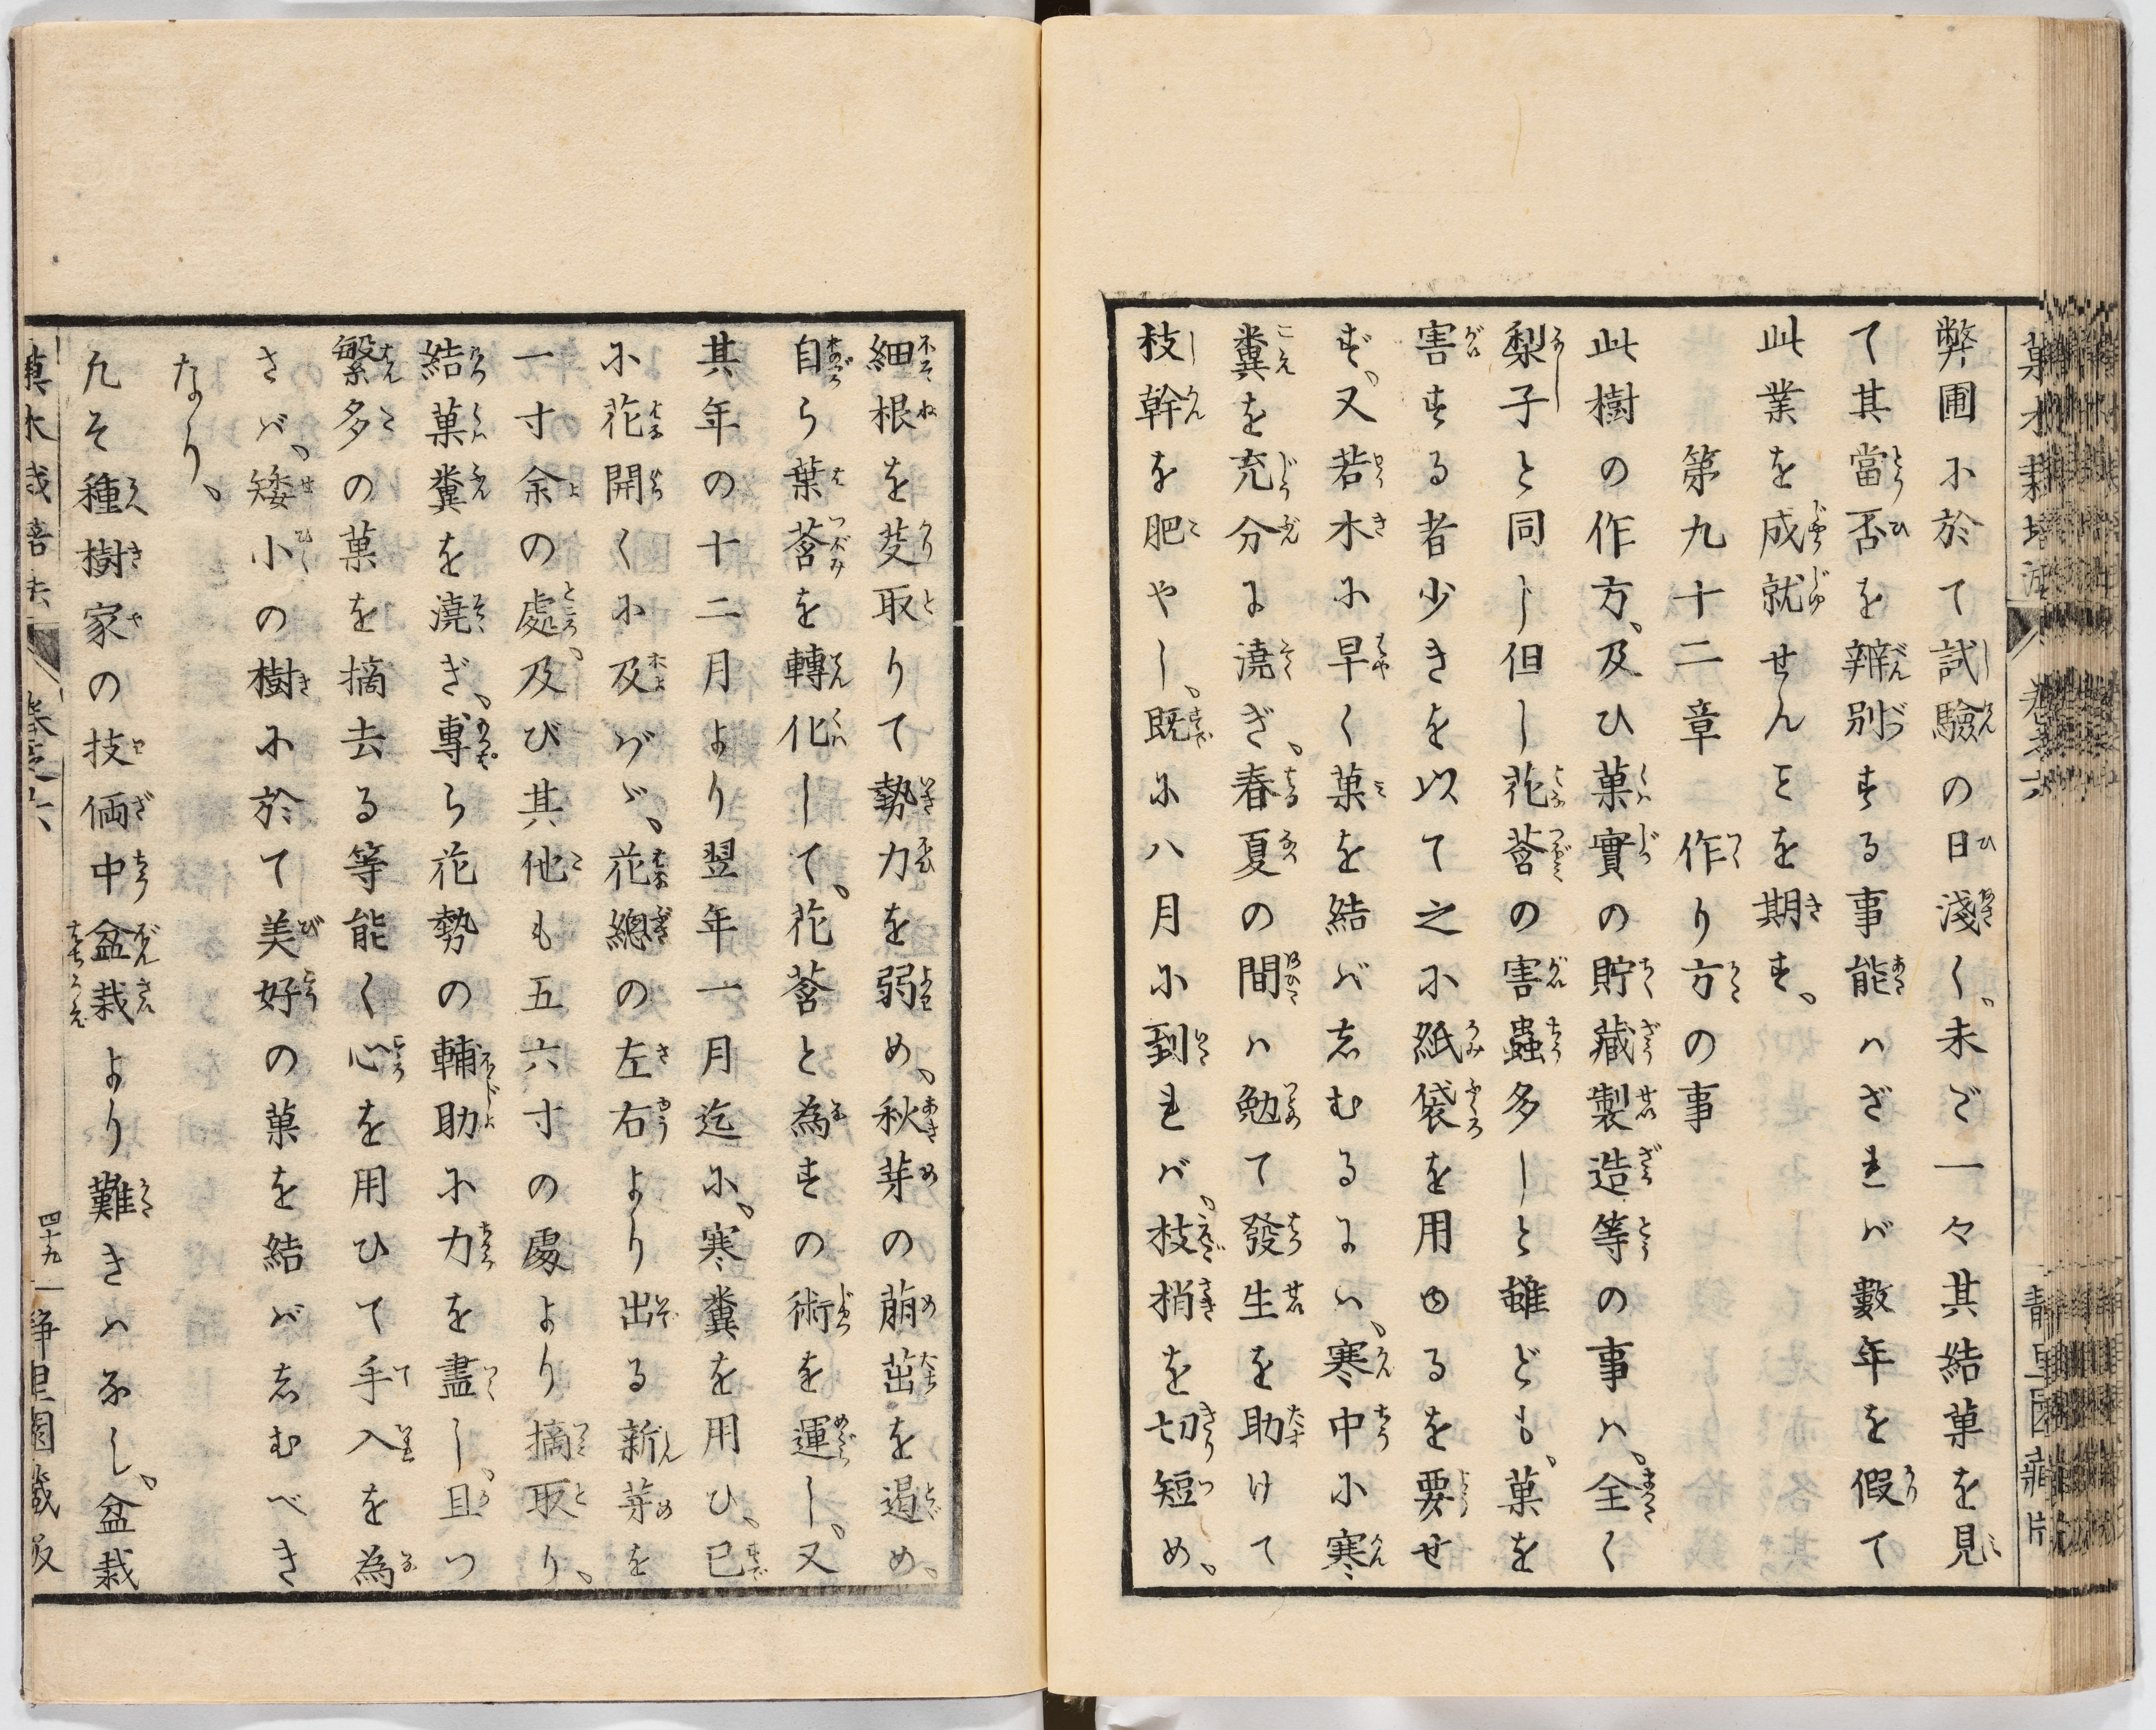 弊圃に於て試驗の日淺く、未ご一々其結菓を見
て其當否を辨別する事能ハざれバ數年を假て
此業を成就せんことを期す、
第九十二章　作り方の事
此樹の作方、及ひ菓實の貯藏製造等の事ハ、全く
梨子と同じ但し花莟の害蟲多しと雖ども、菓を
害する者少きを以て之に紙袋を用ゆるを要せ
ず、又若木に早く菓を結バしむるにハ、寒中に寒
糞を充分に澆ぎ、春夏の間ハ勉て發生を助けて
枝幹を肥やし、既に八月に到れバ、枝梢を切短め、
細根を芟取りて勢力を弱め、秋芽の萠茁を遏め、
自ら葉莟を轉化して、花莟と為すの術を運し、又
其年の十二月より翌年一月迄に、寒糞を用ひ、已
に花開くに及バゞ、花總の左右より出る新芽を
一寸余の處、及び其他も五六寸の處より摘取り、
結菓糞を澆ぎ、專ら花勢の輔助に力を盡し、且つ
繁多の菓を摘去る等能く心を用ひて手入を為
さバ、矮小の樹に於て美好の菓を結バしむべき
なり、
凡そ種樹家の技倆中盆栽より難きハなし、盆栽
菓木栽培法　卷之六　四十九　靜里園藏版